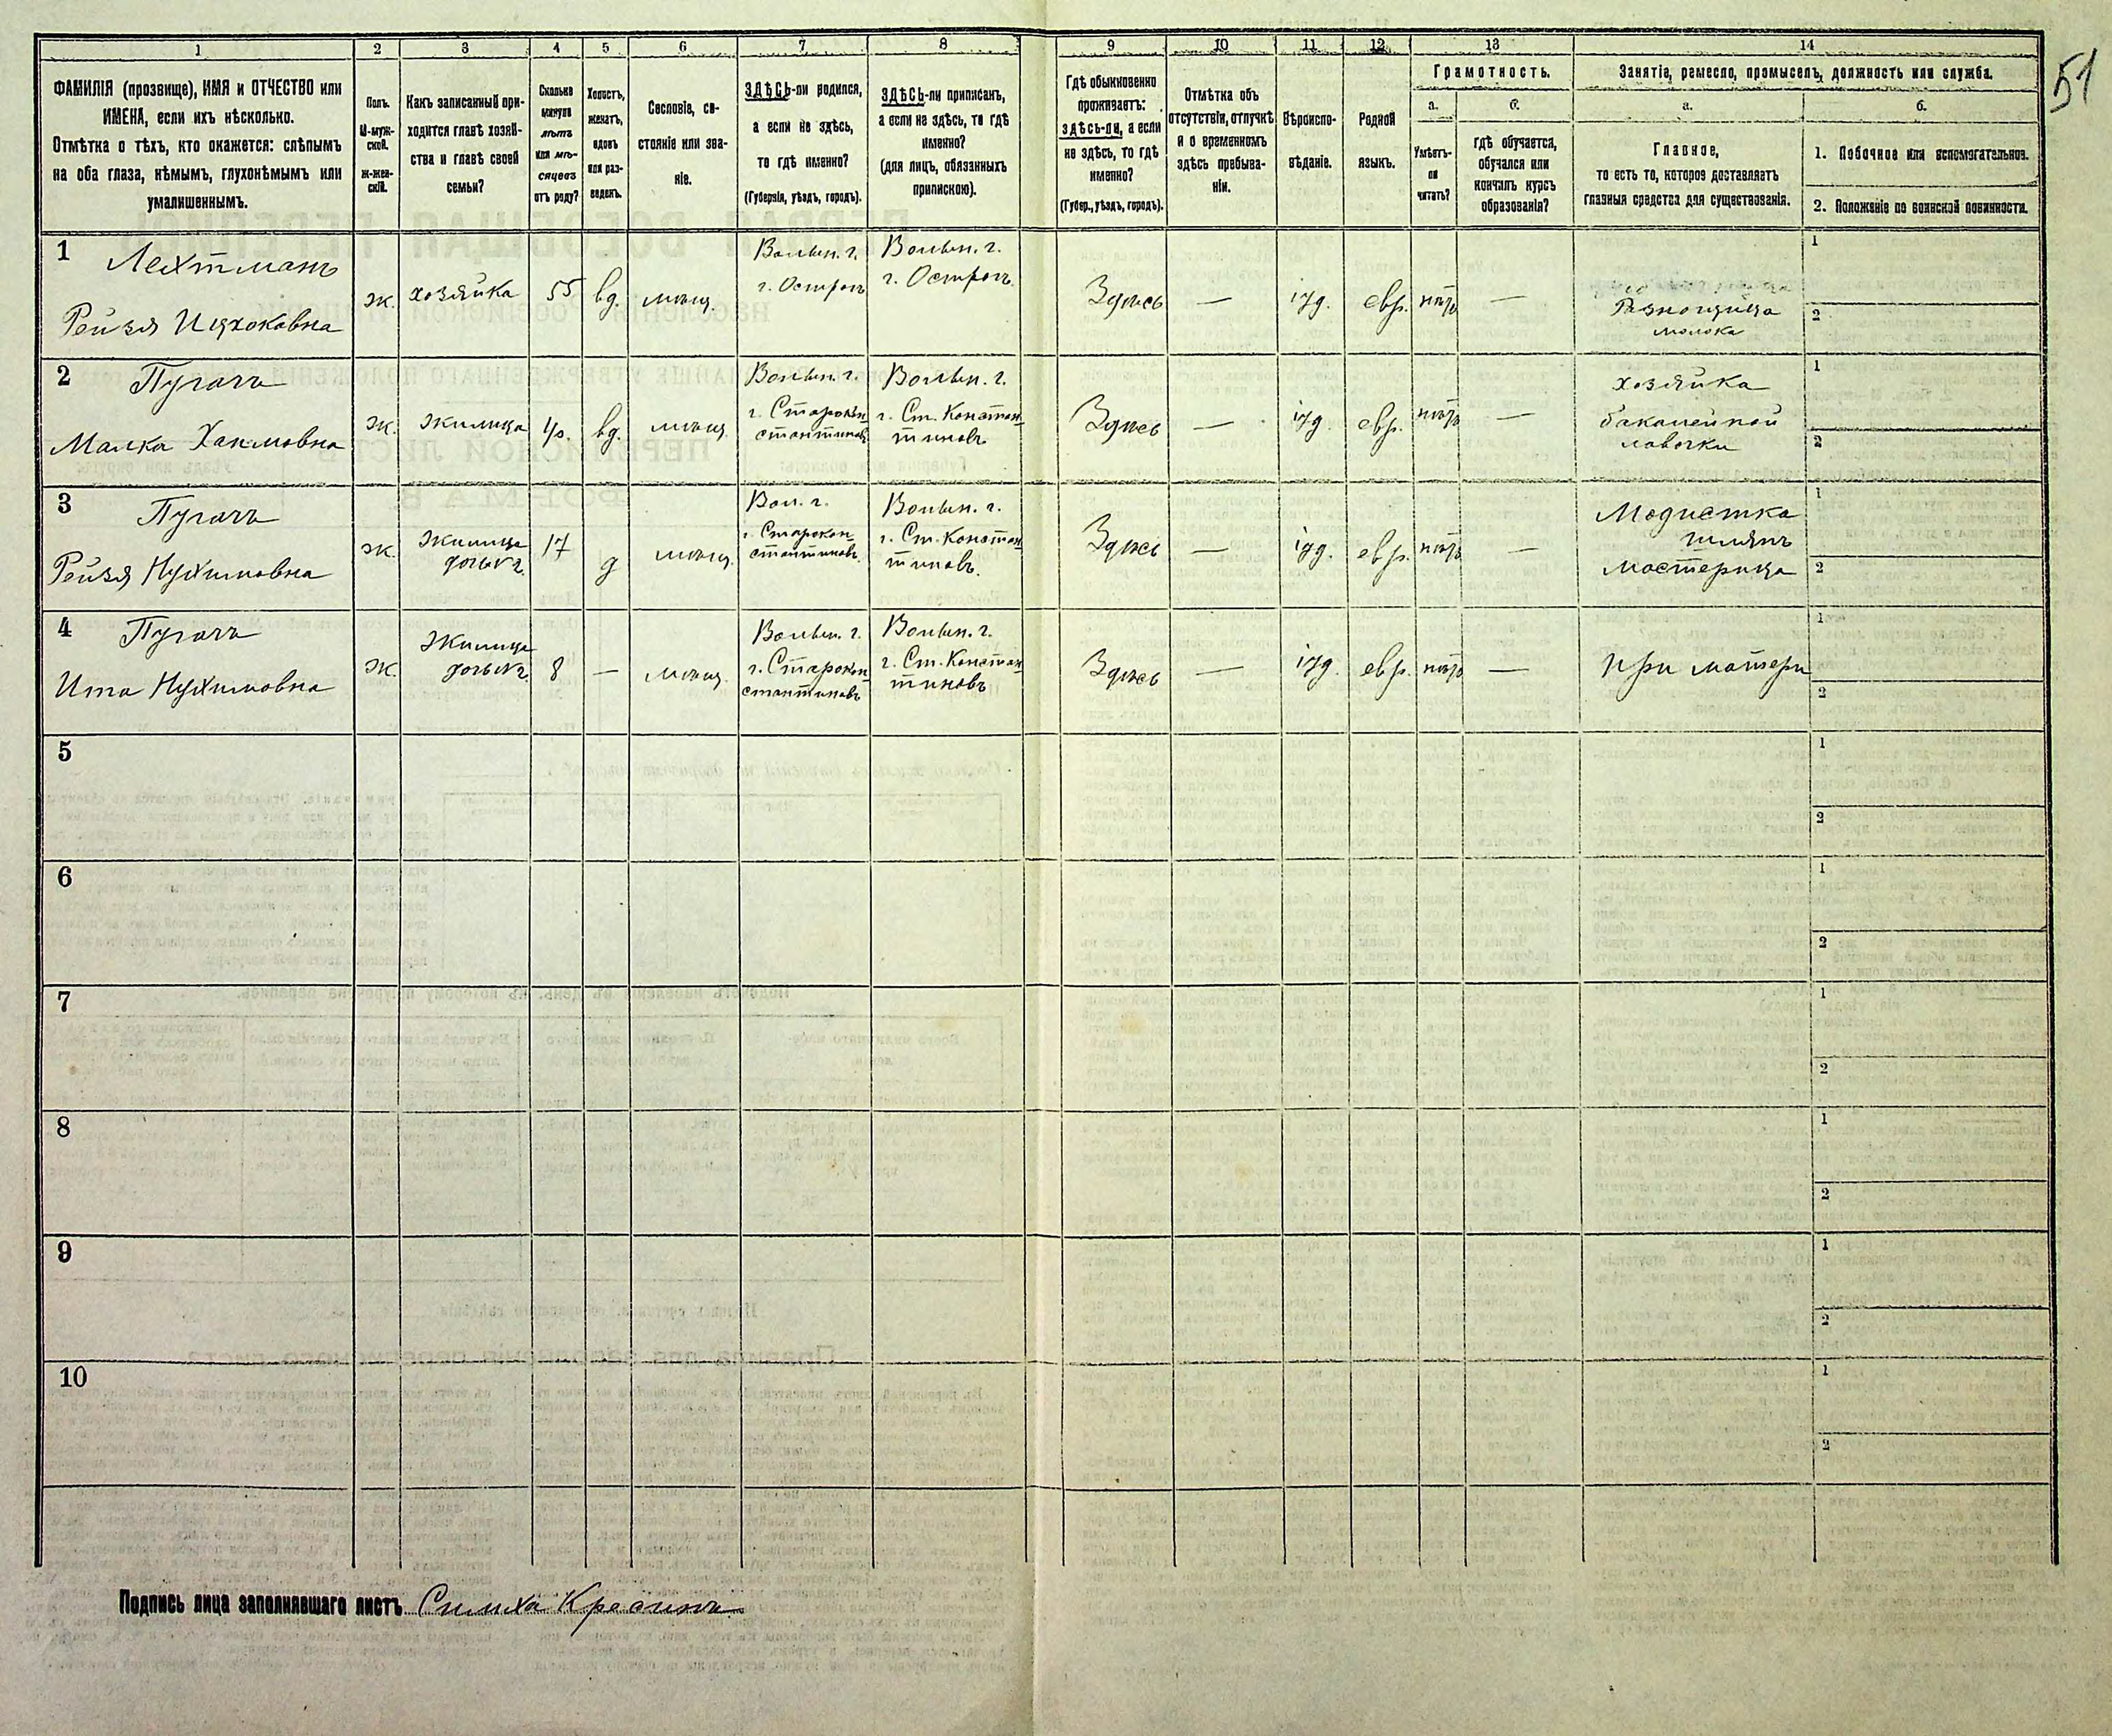 1 2 3 4 5 6 7 8 9 10 11 12 13 14
51
ФАМИЛІЯ (прозвище), ИМЯ и ОТЧЕСТВО или
ИМЕНА, если ихъ нѣсколько.
Отмѣтка о тѣхъ, кто окажется: слѣпымъ
на оба глаза, нѣмымъ, глухонѣмымъ или
умалишеннымъ.
Полъ.
М-муж-
ской.
ж-жен-
скій.
Какъ записанный при-
ходится главѣ хозяй-
ства и главѣ своей
семьи?
Сколько
минуло
лѣтъ
или мѣ-
сяцевъ
отъ роду?
Холостъ,
женатъ,
вдовъ
или раз-
веденъ.
Сословіе, со-
стояніе или зва-
ніе.
ЗДѢСЬ-ли родился,
а если не здѣсь,
то гдѣ именно?
(Губернія, уѣздъ, городъ).
ЗДѢСЬ-ли приписанъ,
а если не здѣсь, то гдѣ
именно?
(для лицъ, обязанныхъ
припискою).
Гдѣ обыкновенно
проживаетъ:
здѣсь-ли, а если
не здѣсь, то гдѣ
именно?
(Губер., уѣздъ, городъ).
Отмѣтка объ
отсутствіи, отлучкѣ
и о временномъ
здѣсь пребыва-
ніи.
Вѣроиспо-
вѣданіе.
Родной
языкъ.
Грамотность.
а.
Умѣетъ-
ли
читать?
б.
гдѣ обучается,
обучался или
кончилъ курсъ
образованія?
Занятіе, ремесло, промыселъ, должность или служба.
а.
Главное,
то есть то, которое доставляетъ
главныя средства для существованія.
б.
1. Побочное или вспомогательное.
2. Положеніе по воинской повинности.
1 Лехтманъ
Рейзя Ицхоковна
ж.
хозяйка
55
вд.
мѣщ.
Волын. г.
г. Острогъ
Волын. г.
г. Острогъ
Здѣсь
—
іуд.
евр.
нѣтъ
—
Разнощица
молока
1
2
2 Пугачъ
Малка Хаимовна
ж.
жилица
40.
вд.
мѣщ.
Волын. г.
г. Старокон
стантиновъ
Волын. г.
г. Ст. Констан
тиновъ
Здѣсь
—
іуд.
евр.
нѣтъ
—
хозяйка
бакалейной
лавочки
1
2
3 Пугачъ
Рейзя Нухимовна
ж.
жилица
дочь к 2.
17
д
мѣщ.
Вол. г.
г. Старокон
стантиновъ
Волын. г.
г. Ст. Констан
тиновъ.
Здѣсь
—
іуд.
евр.
нѣтъ
—
Модистка
шляпъ
мастерица
1
2
4 Пугачъ
Ита Нухимовна
ж.
жилица
дочь к 2.
8
—
мѣщ.
Волын. г.
г. Старокон
стантиновъ
Волын. г.
г. Ст. Констан
тиновъ
Здѣсь
—
іуд.
евр.
нѣтъ
—
при матери
1
2
5
1
2
6
1
2
7
1
2
8
1
2
9
1
2
10
1
2
Подпись лица заполнявшаго листъ Симха